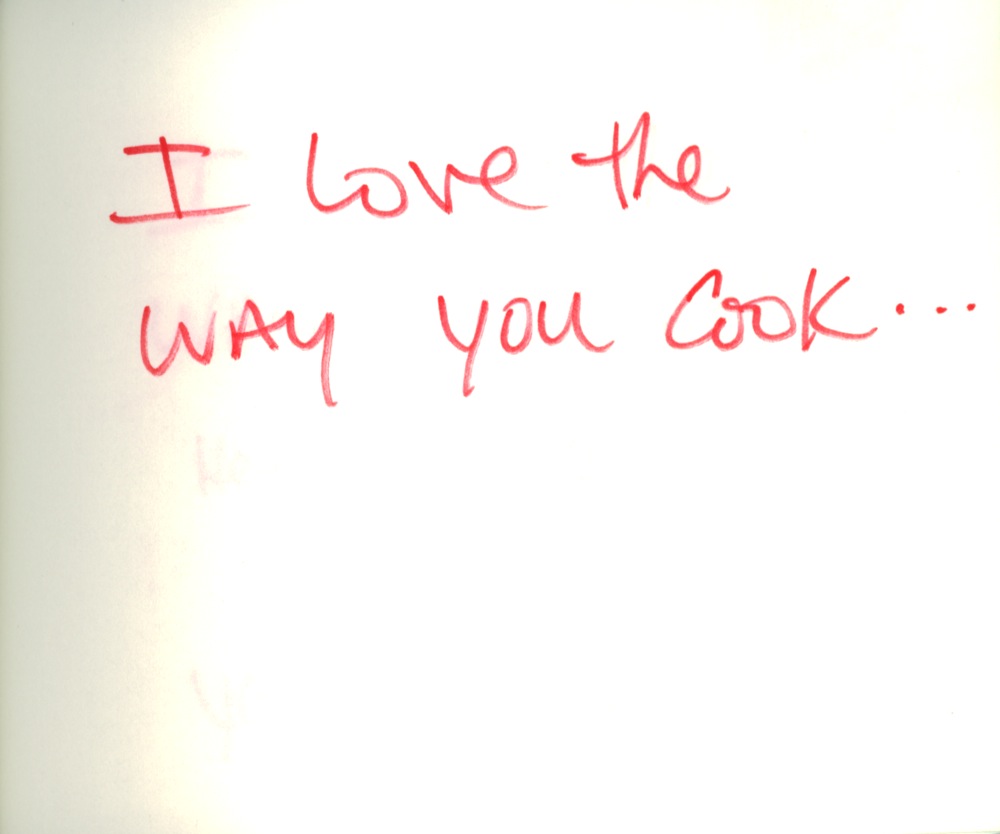 I love the
WAY YOU COOK...